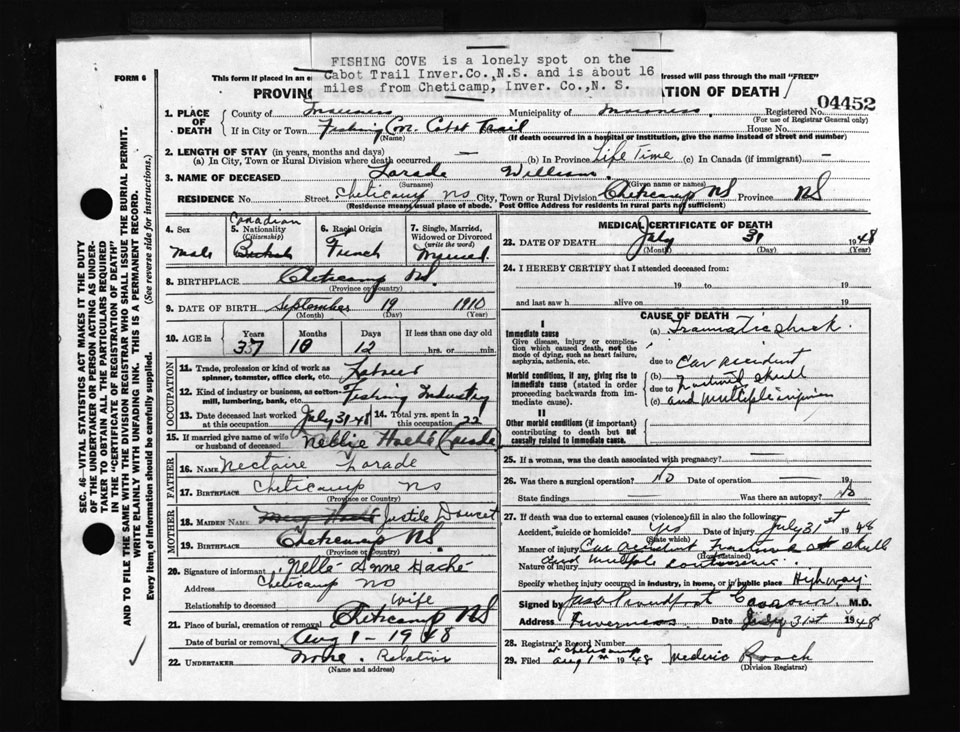 FISHING COVE is a lonely spot on the
Cabot Trail Inver.Co.,N.S. and is about 16
miles from Cheticamp, Inver. Co.,N. S.
FORM 6
This form if placed in an e
dressed will pass through the mail "FREE"
PROVINC
ATION OF DEATH
04452
1. PLACE OF DEATH
County of Inverness Municipality of Inverness Registered No.
(For use of Registrar General only)
If in City or Town Fishing Cove Cabot Trail House No.
(Name) (If death occurred in a hospital or institution, give the name instead of street and number)
2. LENGTH OF STAY (in years, months and days)
(a) In City, Town or Rural Division where death occurred — (b) In Province Life Time (c) In Canada (if immigrant) —
3. NAME OF DECEASED Larade William
(Surname) (Given name or names)
RESIDENCE No. Street Cheticamp NS City, Town or Rural Division Cheticamp NS Province NS
(Residence means usual place of abode. Post Office Address for residents in rural parts sufficient)
4. Sex Male
5. Nationality (Citizenship) Canadian
6. Racial Origin French
7. Single, Married, Widowed or Divorced (write the word) Married
8. BIRTHPLACE Cheticamp NS
(Province or Country)
9. DATE OF BIRTH September 19 1910
(Month) (Day) (Year)
10. AGE in Years Months Days If less than one day old
37 10 12 hrs. or min.
OCCUPATION
11. Trade, profession or kind of work as spinner, teamster, office clerk, etc. Laborer
12. Kind of industry or business, as cotton-mill, lumbering, bank, etc. Fishing Industry
13. Date deceased last worked at this occupation July 31-48 14. Total yrs. spent in this occupation 22
15. If married give name of wife or husband of deceased Nellie Haché (Larade)
FATHER
16. NAME Nectaire Larade
17. BIRTHPLACE Cheticamp NS
(Province or Country)
MOTHER
18. MAIDEN NAME Justile Doucet
19. BIRTHPLACE Cheticamp NS.
(Province or Country)
20. Signature of informant Nellé Anne Haché
Address Cheticamp NS
Relationship to deceased Wife
21. Place of burial, cremation or removal Cheticamp NS
Date of burial or removal Aug 1-1948
22. UNDERTAKER None. Relative
(Name and address)
MEDICAL CERTIFICATE OF DEATH
23. DATE OF DEATH July 31 1948
(Month) (Day) (Year)
24. I HEREBY CERTIFY that I attended deceased from:
19 to 19
and last saw h alive on 19
CAUSE OF DEATH
I
Immediate cause
Give disease, injury or complication which caused death, not the mode of dying, such as heart failure, asphyxia, asthenia, etc.
(a) Traumatic shock
due to
Morbid conditions, if any, giving rise to immediate cause (stated in order proceeding backwards from immediate cause).
(b) Car accident
due to Fractured skull
(c) and multiple injuries
II
Other morbid conditions (if important) contributing to death but not causally related to immediate cause.
25. If a woman, was the death associated with pregnancy? —
26. Was there a surgical operation? No Date of operation — 19
State findings — Was there an autopsy? No
27. If death was due to external causes (violence) fill in also the following:
Accident, suicide or homicide? Yes Date of injury July 31st 1948
(State which)
Manner of injury Car accident Fracture of skull
(How sustained)
Nature of injury and multiple contusions
Specify whether injury occurred in industry, in home, or in public place Highway
Signed by Jas. Proudfoot Coroner M.D.
Address Inverness Date July 31st 1948
28. Registrar's Record Number
29. Filed at Cheticamp Aug 1st 1948 Mederic Roach
(Division Registrar)
SEC. 46—VITAL STATISTICS ACT MAKES IT THE DUTY
OF THE UNDERTAKER OR PERSON ACTING AS UNDER-
TAKER TO OBTAIN ALL THE PARTICULARS REQUIRED
IN THE "CERTIFICATE OF REGISTRATION OF DEATH"
AND TO FILE THE SAME WITH THE DIVISION REGISTRAR WHO SHALL ISSUE THE BURIAL PERMIT.
WRITE PLAINLY WITH UNFADING INK. THIS IS A PERMANENT RECORD.
Every item of information should be carefully supplied. (See reverse side for instructions.)